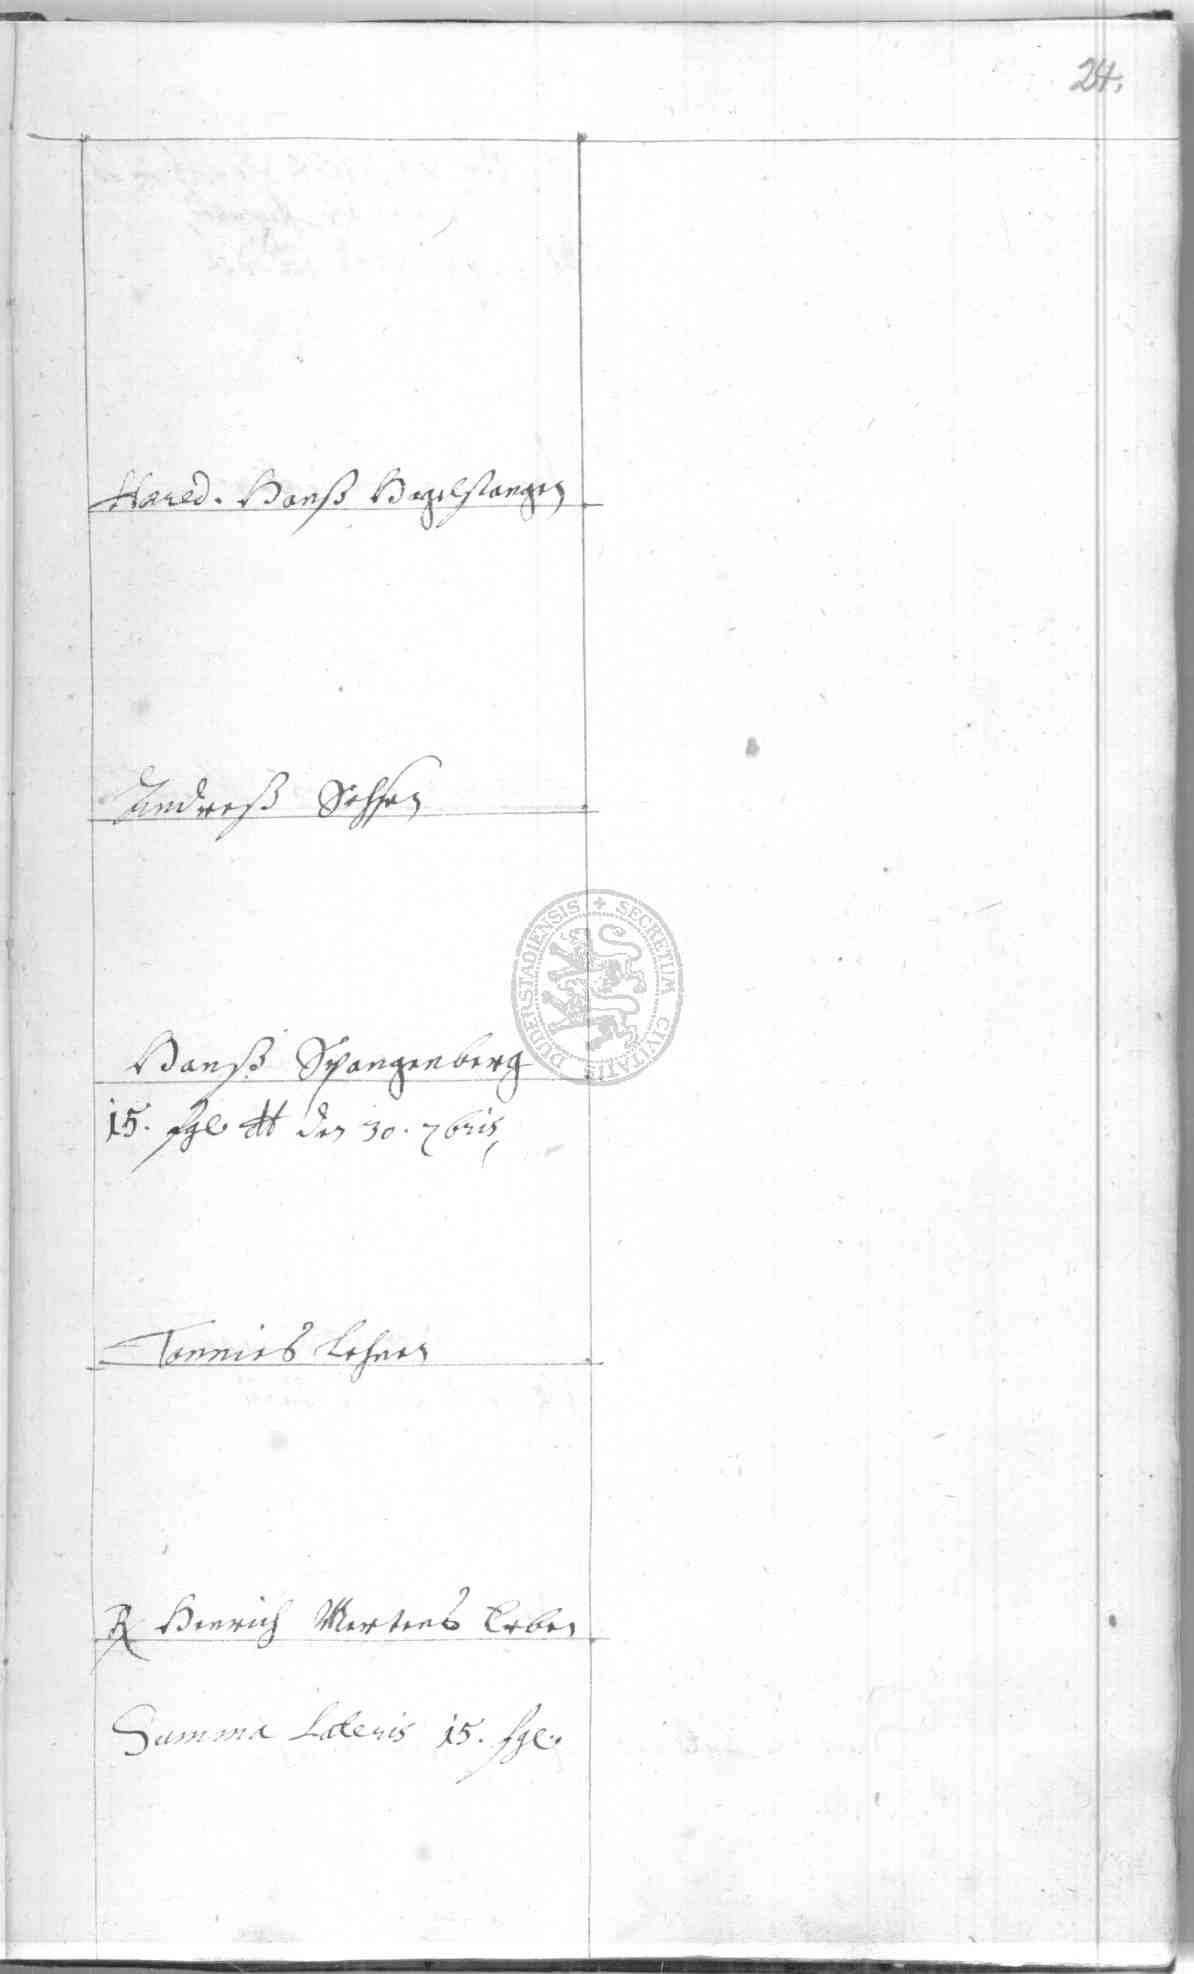 24.
Haered. Hanß Vogelstangen
Andreß
Hanß Spangenberg
15. sgl. dt den 30. 7bris
Tonnies Lehnen
Henrich Mertens Erben
Summa Lateris 15. sgl.
SECRETUM CIVITATIS DUDERSTADIENSIS